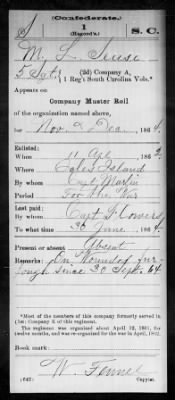 (Confederate.)
S 1 S. C.
(Hagood's.)
M. L.
5 Sgt, (2d) Company A,
1 Reg't South Carolina Vols.*
Appears on
Company Muster Roll
of the organization named above,
for Nov & Dec, 1864.
Enlisted:
When 11 Apr, 186
Where Coles Island
By whom Capt Martin
Period For the War
Last paid:
By whom Capt
To what time 30 June, 1864.
Present or absent Absent
Remarks: On Wounded fur
lough since 30 Sept. 64
*Most of the members of this company formerly served in (1st) Company E of this regiment.
The regiment was organized about April 12, 1861, for
twelve months, and was re-organized for the war in April, 1862.
Book mark:
W.
(642) Copyist.